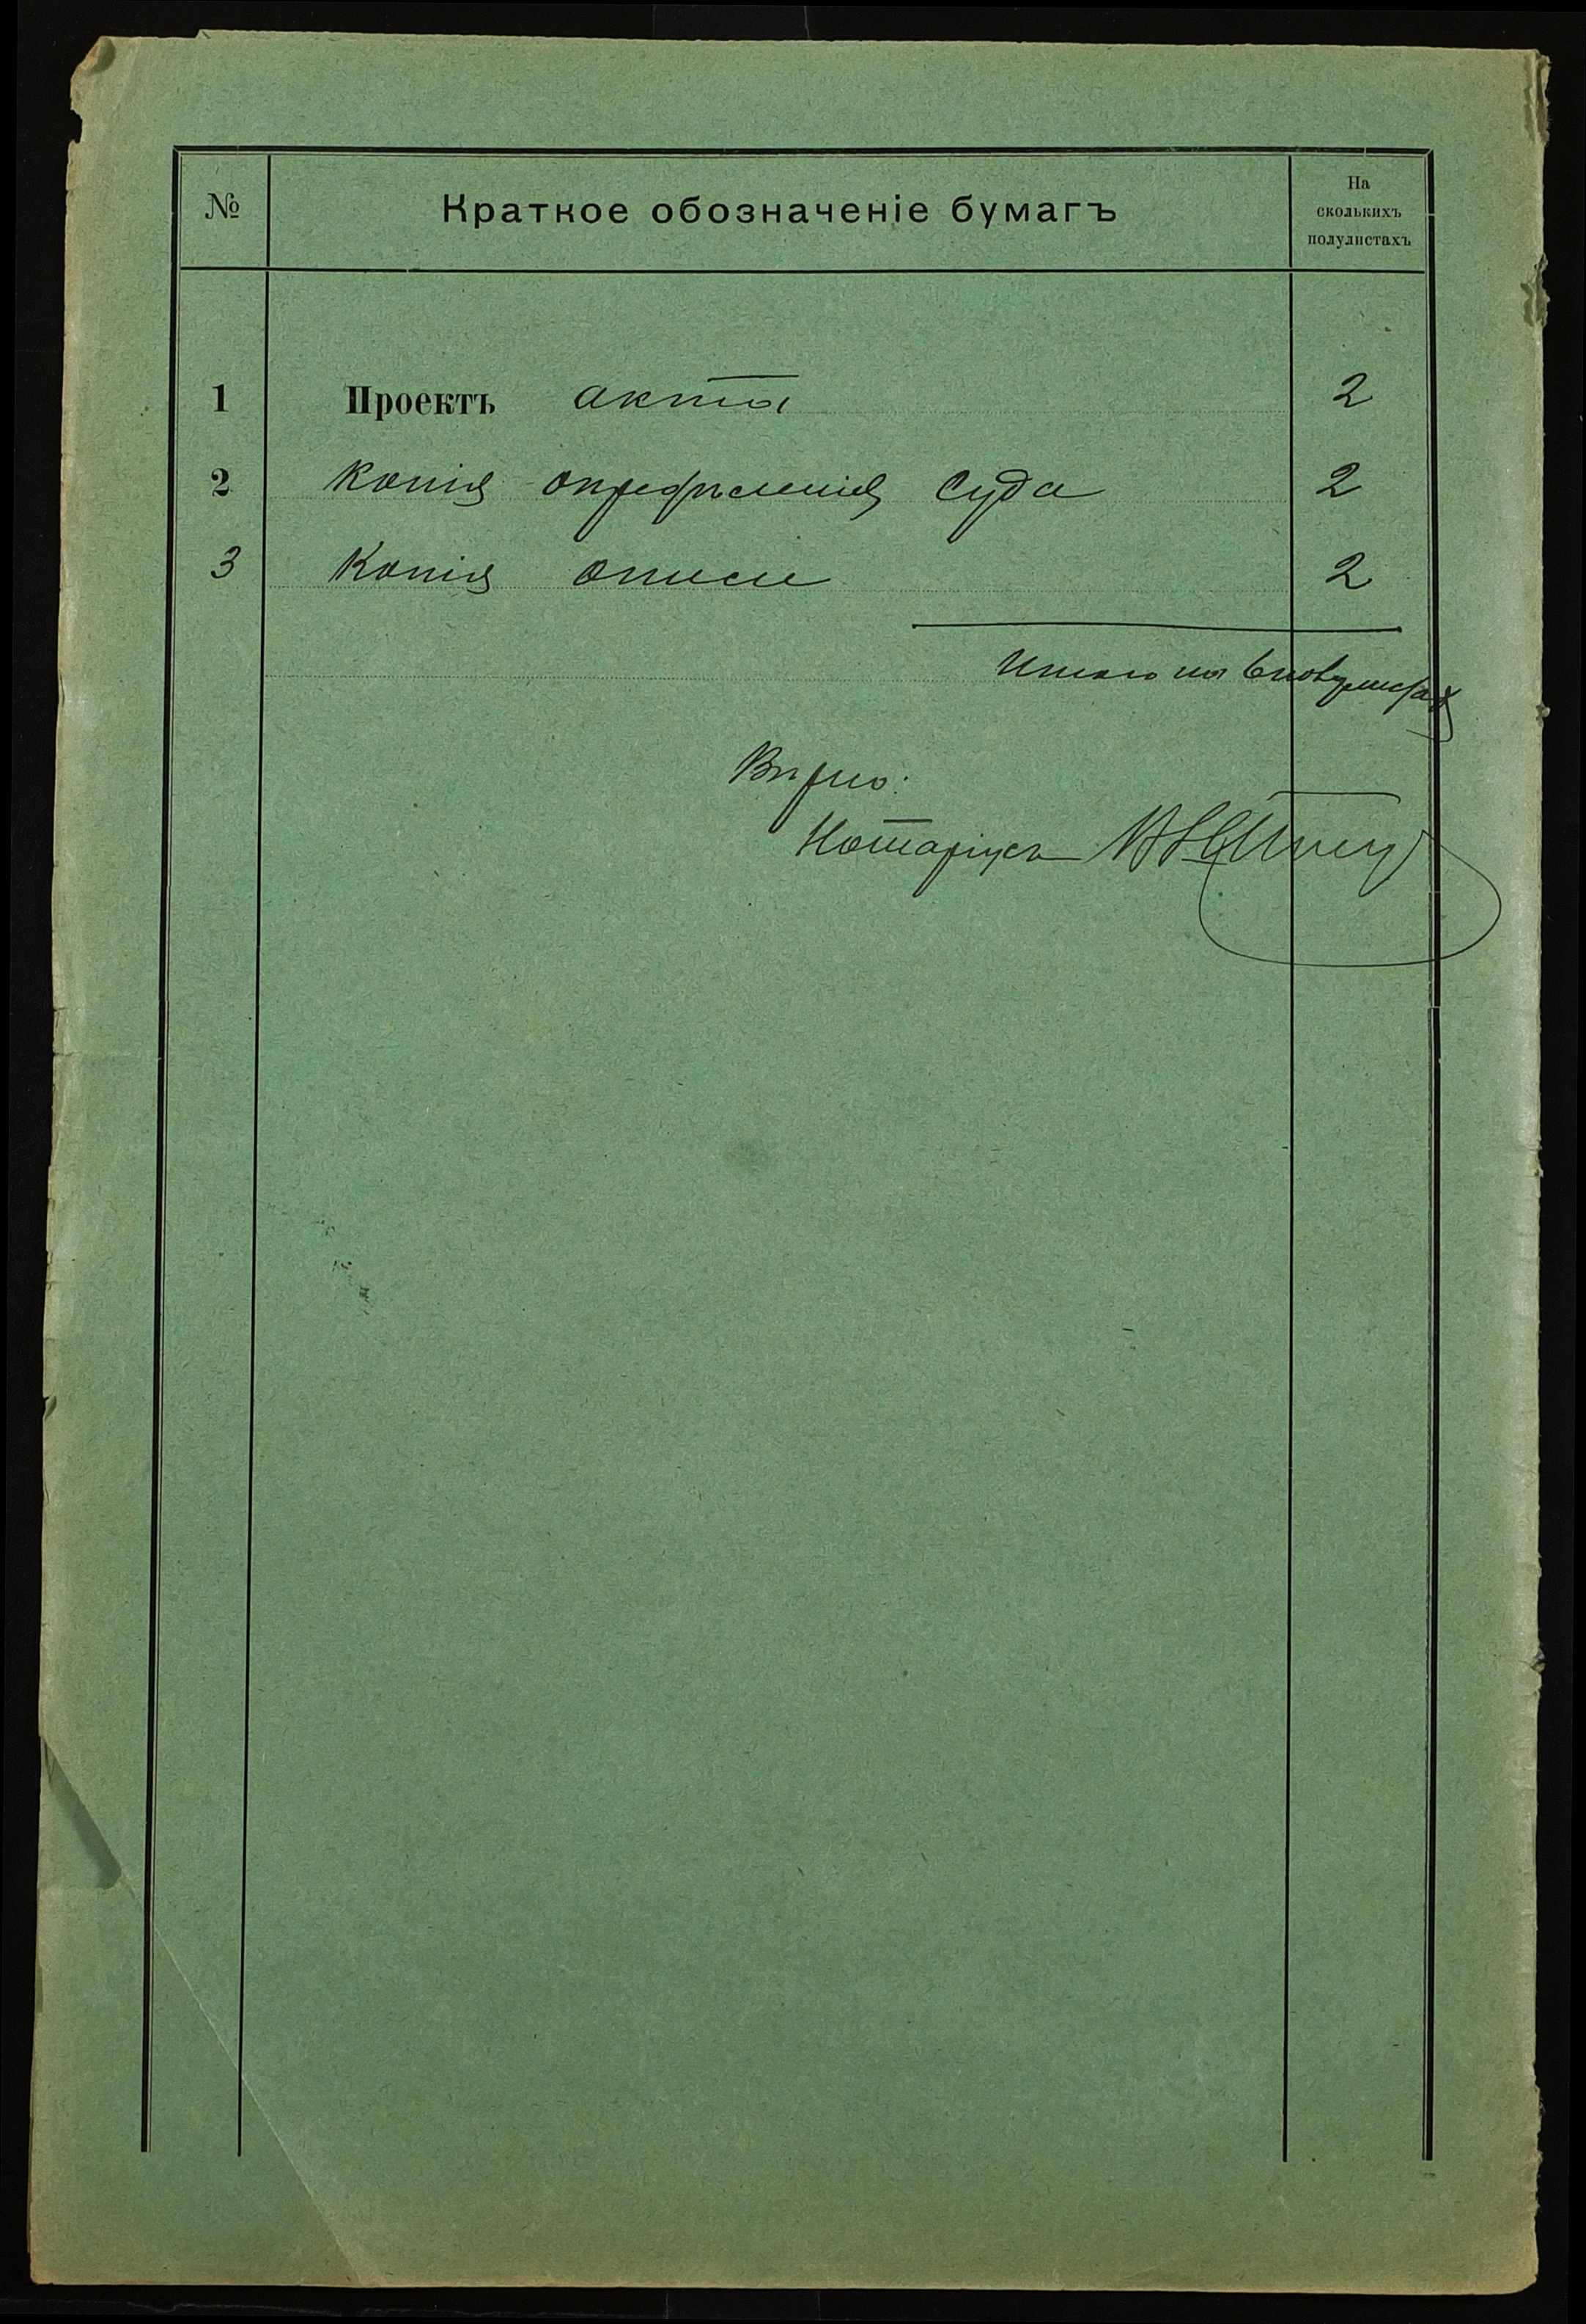 № Краткое обозначеніе бумагъ На
сколькихъ
полулистахъ
1 Проектъ акта 2
2 Копія опредѣленія Суда 2
3 Копія описи 2
Итого на 6 полулистах
Вѣрно:
Нотаріусъ